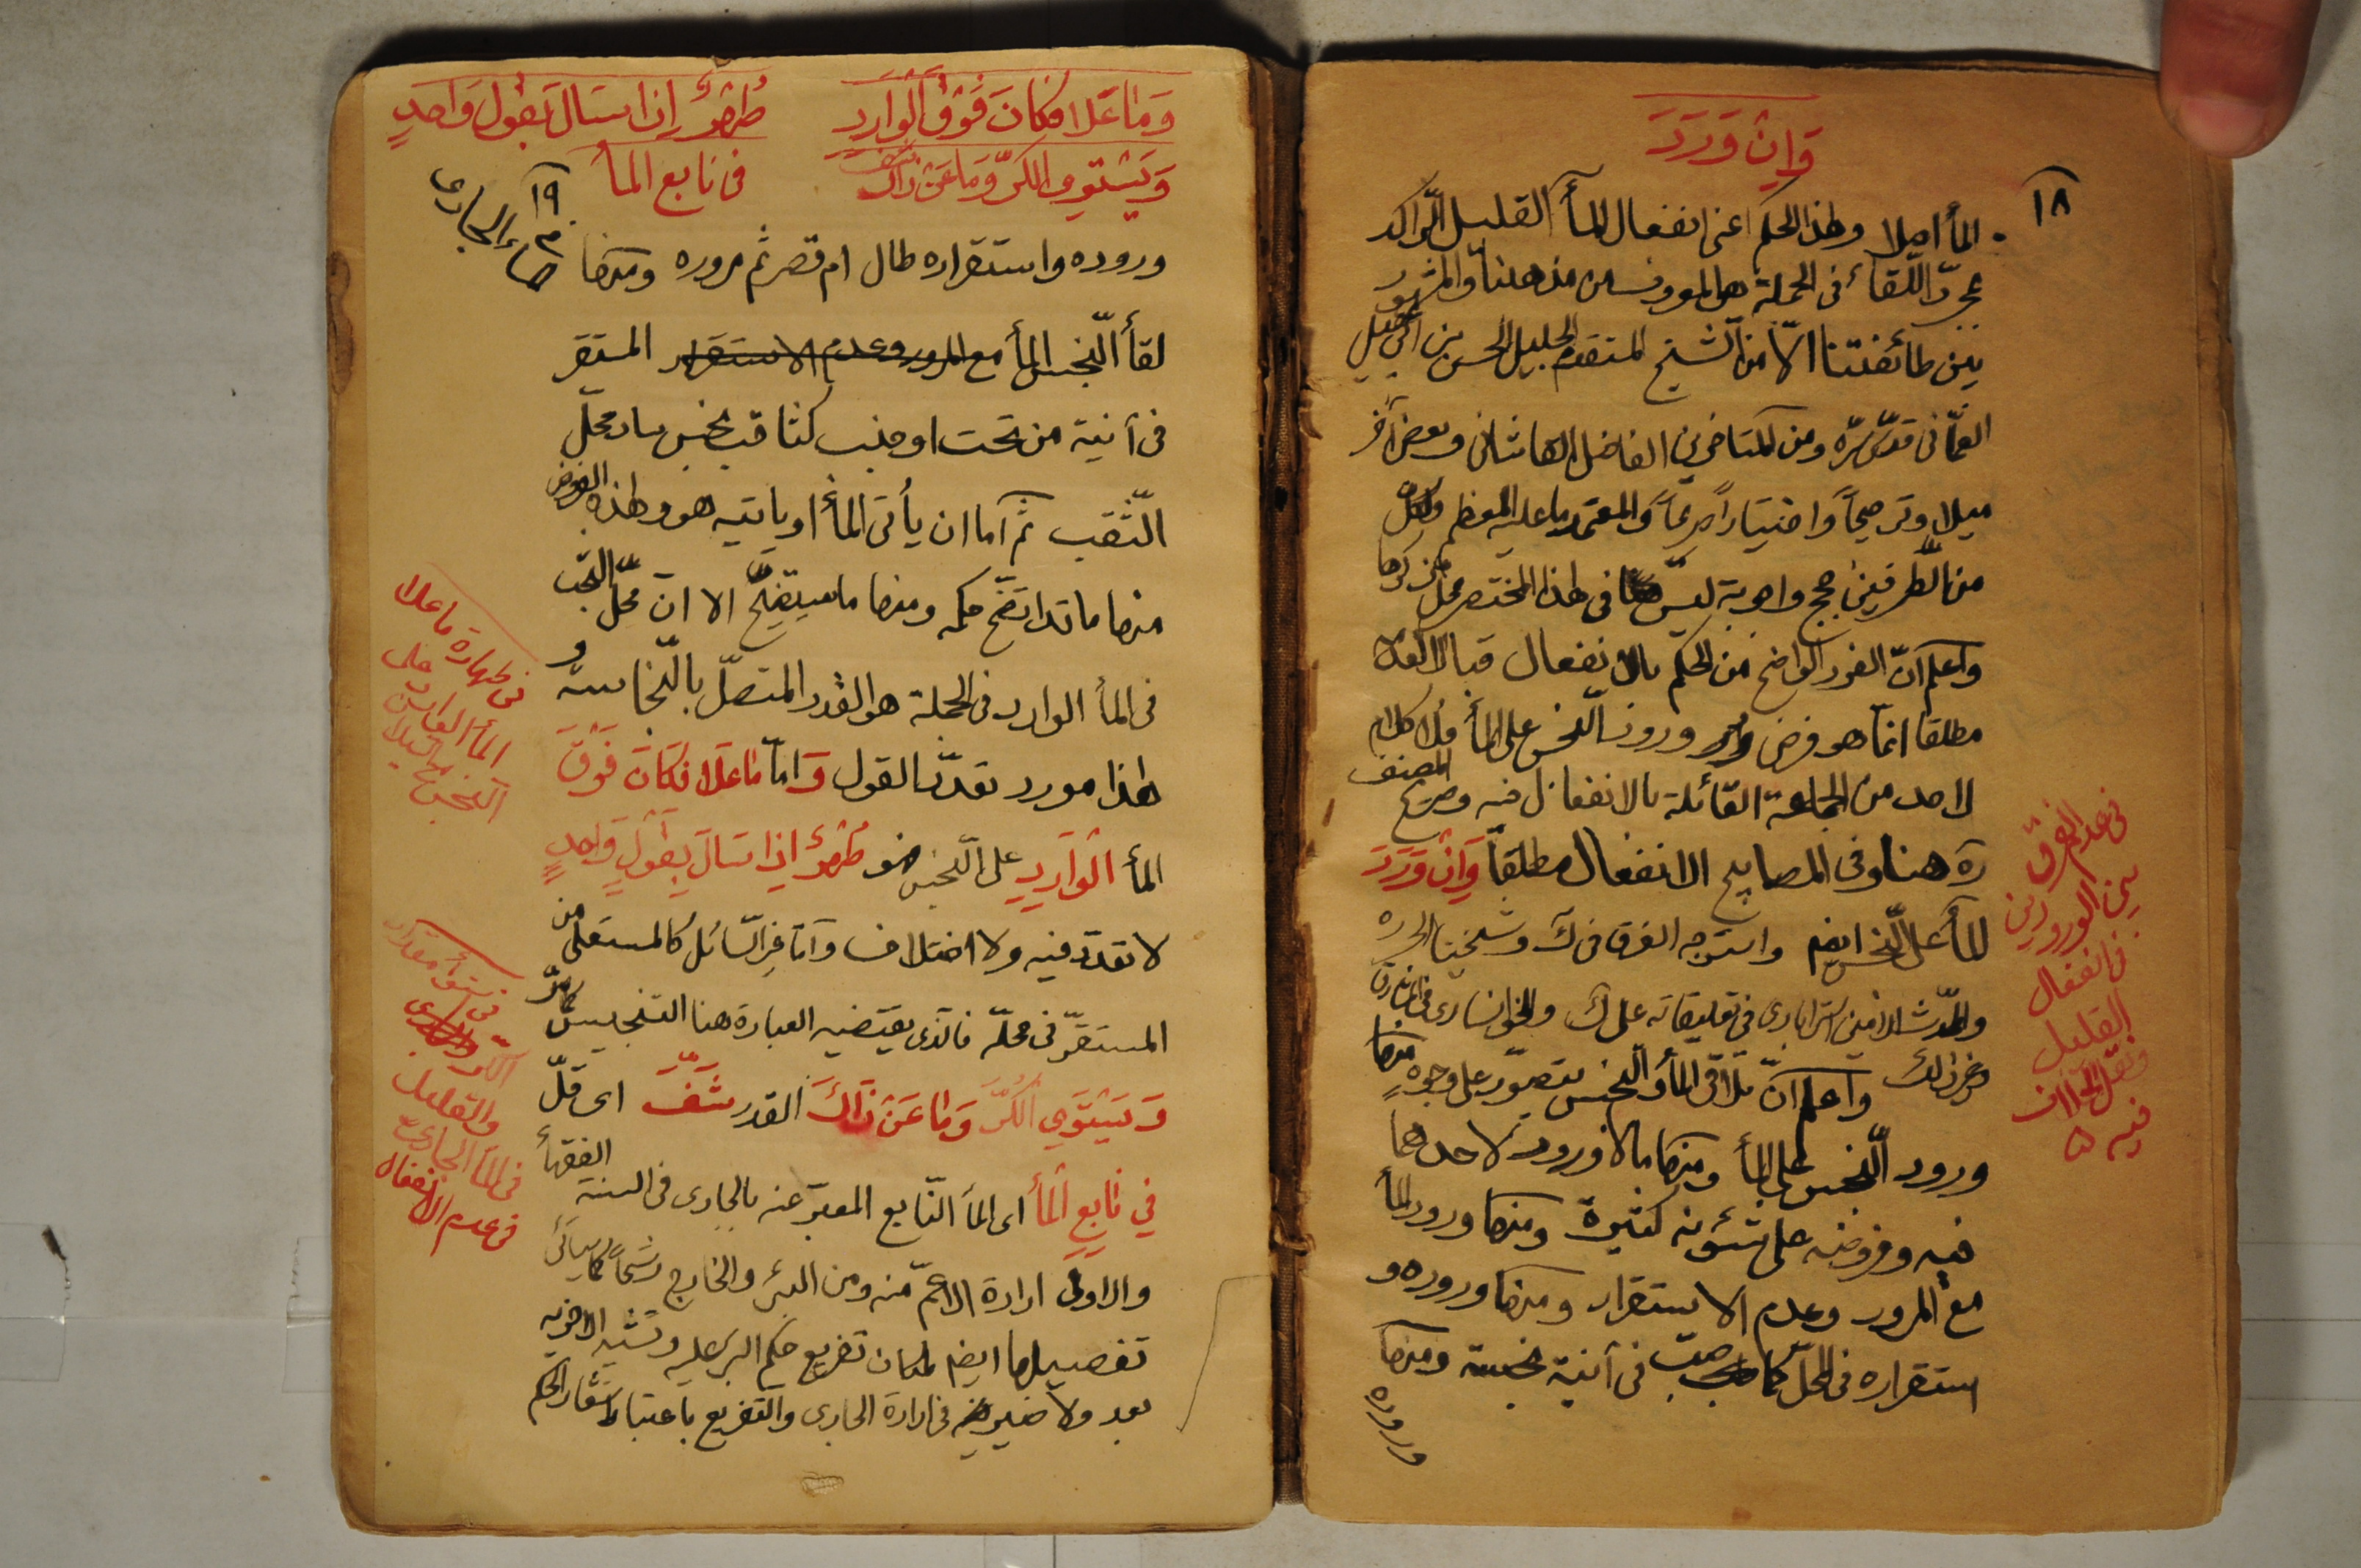 وَاِنْ وَرَدَ
١٨
المأ اصلا وهذا الحكم اعنى انفعال المأ القليل الرّاكد
بمجرّد اللّقأ فى الجملة هو المعروف من مذهبنا والمشهور
بين طائفتنا الّا من الشّيخ المتقدم الجليل الحسن بن ابى عقيل
العمّانى قدّس سرّه ومن المتأخرين الفاضل الكاشانى وبعض آخر
ميلا وترجيحاً واختياراً صريحاً والمعتمد ما عليه المعظم ولكل
من الطّرفين حجج واجوبة ليس هذا المختصر محلّ ذكرها
واعلم انّ الفرد الواضح من الحكم بالانفعال قبال القول
مطلقا انّما هو فرض ورود النّجس على المأ فلا كلام
لاحد من الجماعة القائلة بالانفعال فيه وصريح المصنف
ره هنا وفى المصابيح الانفعال مطلقاً وَاِنْ وَرَدَ
المأ على النّجس ايضا واستوجه الفرق فى ك وشيخنا الحر ره
والمحدّث الامين استرابادى فى تعليقاته على ك والخوانسارى
وغير ذلك واعلم انّ تلاقى المأ والنّجس يتصوّر على وجوه منها
ورود النّجس على المأ ومنها مالا ورود لاحدهما
فيه وفروضه على شئونه كثيرة ومنها ورود المأ
مع المرور وعدم الاستقرار ومنها وروده و
استقراره فى المحلّ كما صبّ فى آنية نجسة ومنها
وروده
فى عدم الفرق
بين الورودين
فى انفعال
القليل
ونقل الخلاف
فيه
وَمٰا عَلاٰ فكٰانَ فَوْقَ الْوٰارِدِ طُهْرٌ اِذٰا سٰالَ بِقَوْلٍ وٰاحِدٍ
وَيَسْتَوِى الكُرّ وَمٰا عَنْ ذٰاكَ شَفّ فى نابع المأ
١٩
فى ماء الجارى
وروده واستقراره طال ام قصر ثم مروره ومنها
لقأ النّجس المأ مع المرور وعدم الاستقرار المستقر
فى آنية من تحت او جنب كثاقب نجس ساد محلّ
الثّقب ثمّ اما ان يأتى المأ او ياتيه هو وهذه الفروض
منها ما قد اتضح حكمه ومنها ما سيتضح الا انّ محلّ التنجّس
فى المأ الوارد فى الجملة هو القدر المتصلّ بالنّجاسة و
هذا مورد تعدّد القول وَامّا مٰا عَلاٰ فَكٰانَ فَوْقَ
المأ الْوٰارِدِ على النّجس فهو طُهْرٌ اِذٰا سٰالَ بِقَوْلٍ وٰاحِدٍ
لا تعدّد فيه ولا اختلاف وامّا غير السّائل كالمستعلى من
المستقرّ فى محلّه فالذى يقتضيه العبارة هنا التنجيس كما مرّ
وَيَسْتَوِى الْكُرّ وَمٰا عَنْ ذٰاكَ القدر شَفَّ اى قلّ
فِي نٰابِعِ الْمٰأ اى المأ النّابع المعبّر عنه بالجارى فى السنة الفقهأ
والاولى ارادة الاعمّ منه ومن البئر والخارج رشحاً كما سيأتى
تفصيلها ايضا لمكان تفريع حكم البئر عليه
بعد ولا ضير فى ارادة الجارى والتفريع باعتبار
فى طهارة ما علا
المأ الوارد على
النّجس مع السّيلان
فى استوأ مقدار
الكر
والقليل
فى المأ الجارى
فى عدم الانفعال